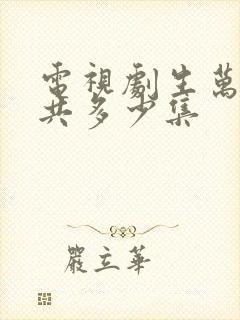 電視劇生萬
共多少集
嚴立華